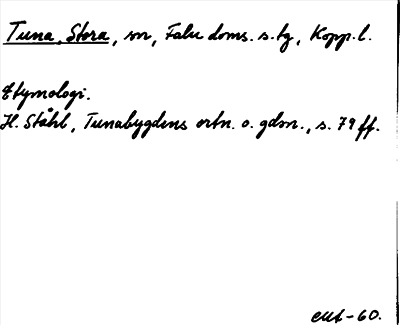 Tuna, Stora, sn, Falu doms. s. tg, Kopp. l.
Etymologi.
H. Ståhl, Tunabygdens ortn. o. gdsn., s. 79 ff.
EMt-60.